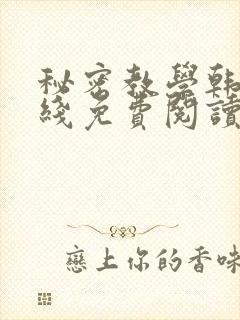 秘密教學韩
綫免費閱讀
戀上你的香味